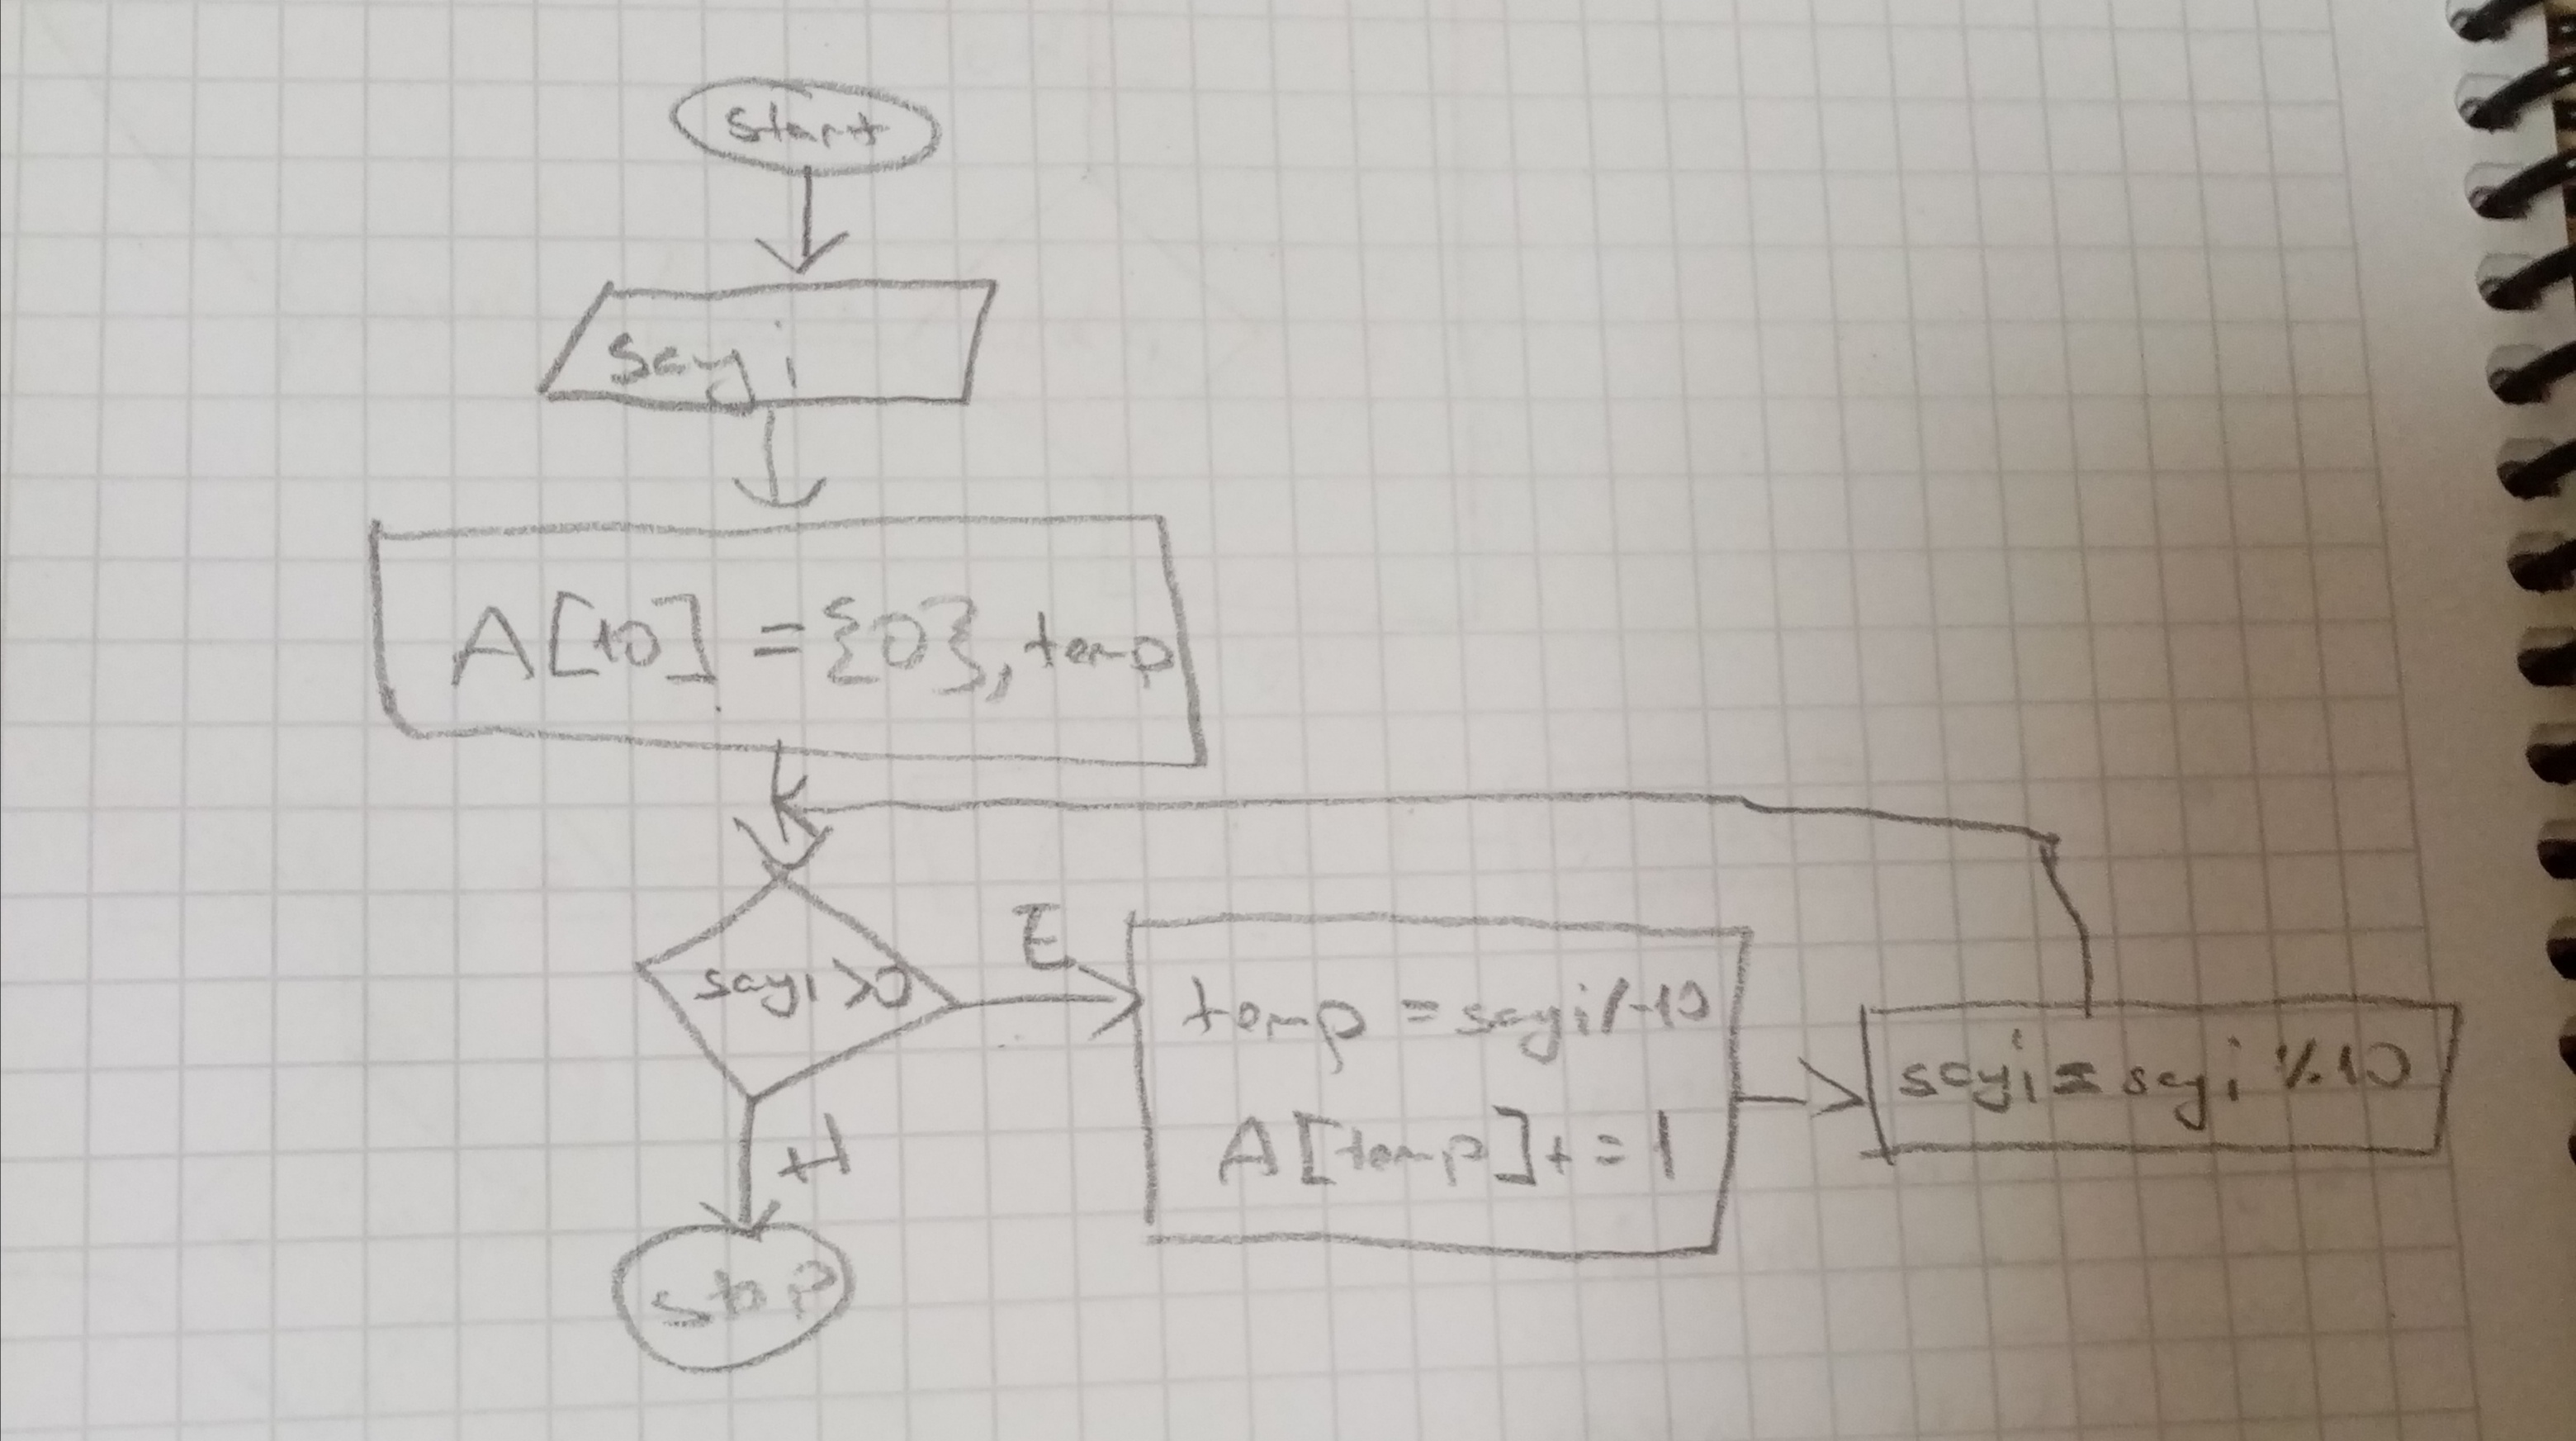 start
sayi
A[10] = {0}, temp
sayi>0
E
temp = sayi/10
A[temp]+=1
sayi = sayi % 10
H
stop